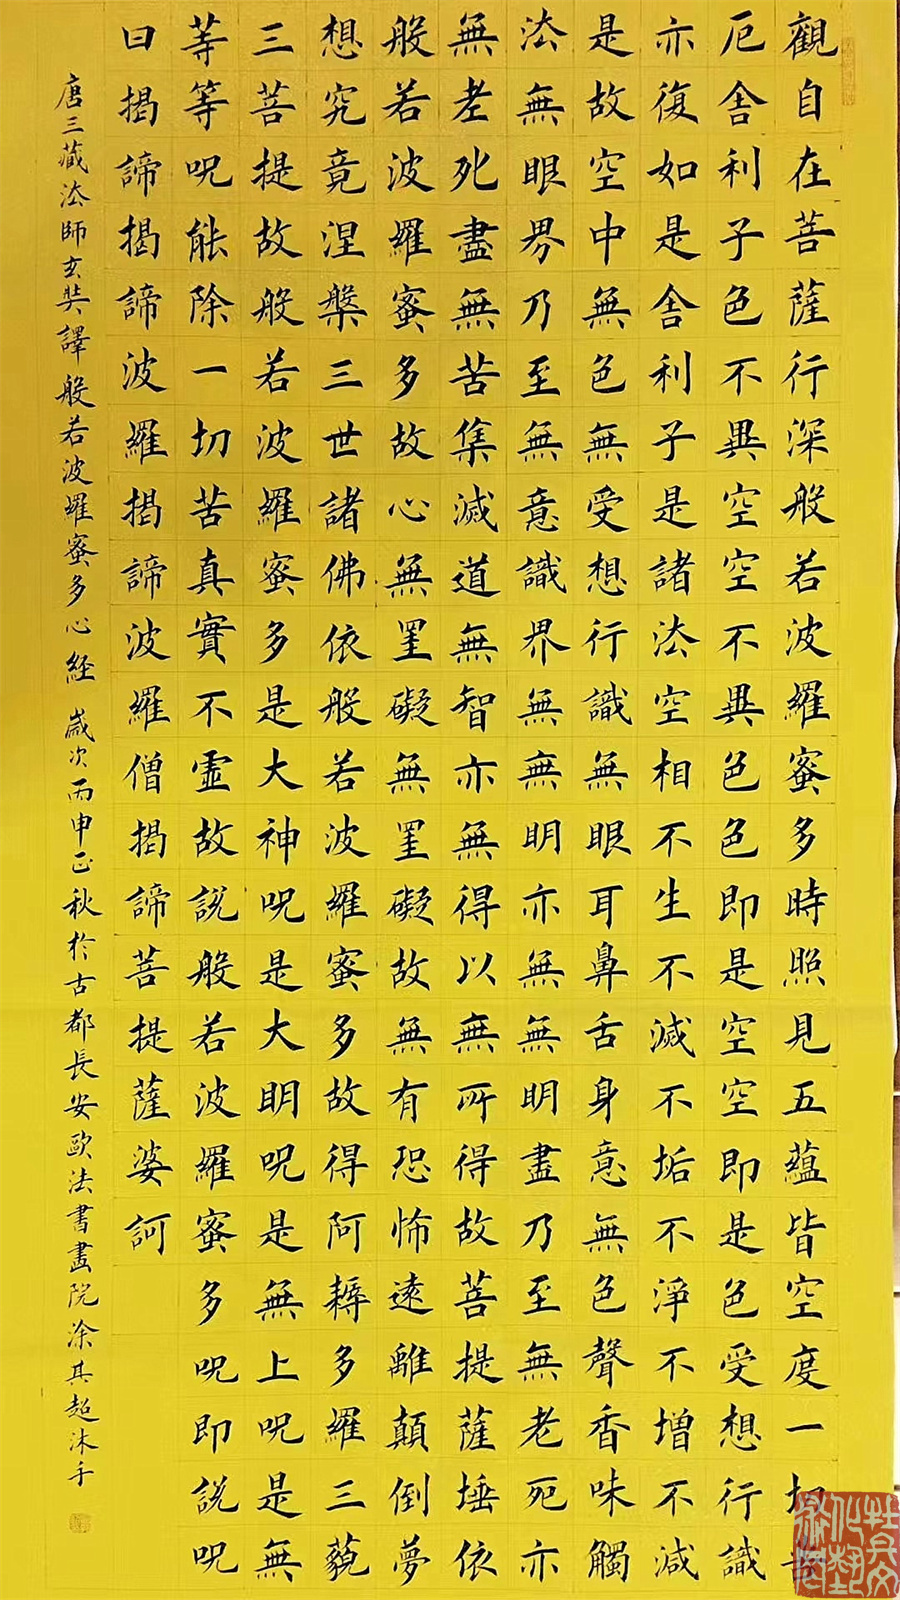 觀自在菩薩行深般若波羅蜜多時照見五蘊皆空度一切苦
厄舍利子色不異空空不異色色即是空空即是色受想行識
亦復如是舍利子是諸法空相不生不滅不垢不淨不增不減
是故空中無色無受想行識無眼耳鼻舌身意無色聲香味觸
法無眼界乃至無意識界無無明亦無無明盡乃至無老死亦
無老死盡無苦集滅道無智亦無得以無所得故菩提薩埵依
般若波羅蜜多故心無罣礙無罣礙故無有恐怖遠離顛倒夢
想究竟涅槃三世諸佛依般若波羅蜜多故得阿耨多羅三藐
三菩提故般若波羅蜜多是大神呪是大明呪是無上呪是無
等等呪能除一切苦真實不虛故說般若波羅蜜多呪即說呪
曰揭諦揭諦波羅揭諦波羅僧揭諦菩提薩婆訶
唐三藏法師玄奘譯般若波羅蜜多心經 歲次丙申正秋於古都長安歐法書畫院涂其超沐手